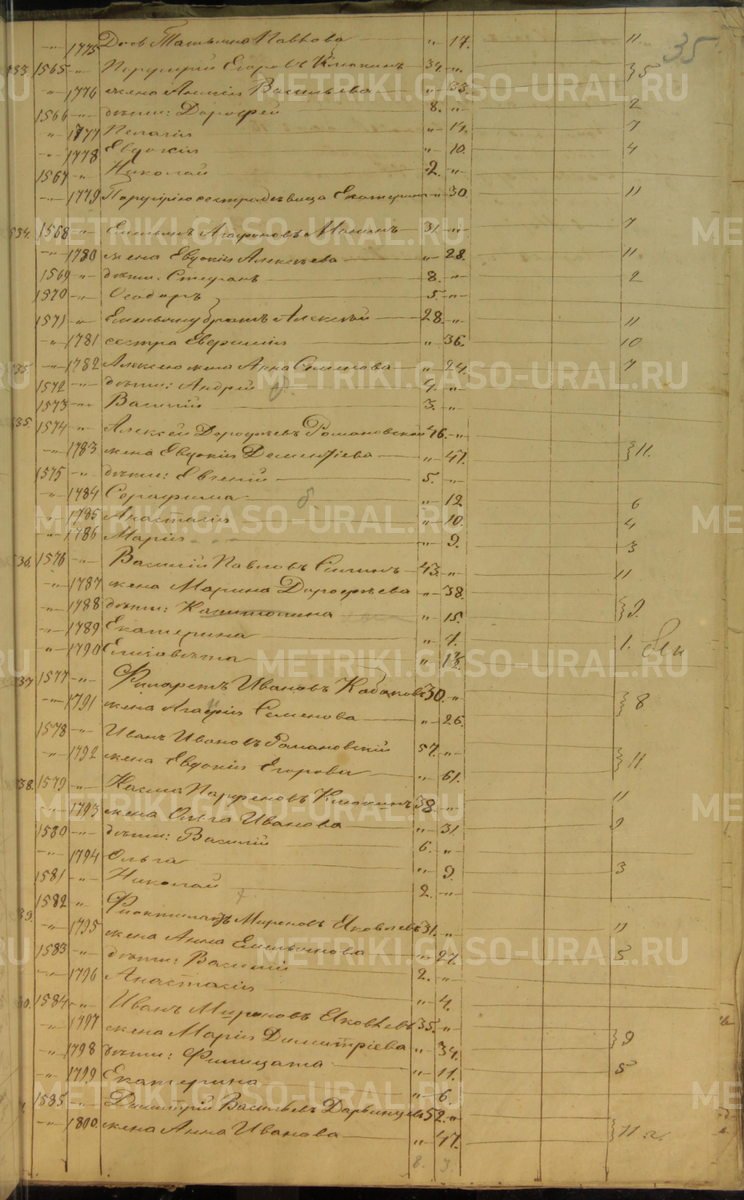 35.
" 1775 Дочь Татьяна Павлова " 17. "
1565 " Порфирий Егоровъ Клюкинъ 34. " } 5
" 1776 жена Анисія Васильева " 33.
1566 " дѣти: Дорофей 8. " 2
" 1777 Пелагія " 14. 7
" 1778 Евдокія " 10. 4
1567 " Николай 2. "
" 1779 Порфирію сестра дѣвица Екатерина " 30 11
534. 1568 " Емельянъ Агафоновъ 31. " 7
" 1780 жена Евдокія Алексѣева " 28. 11
1569 " дѣти: Стефанъ 8. " 2
1570 " Ѳеодоръ 5. "
1571 " Емельяну братъ Алексѣй 28. " 11
" 1781 сестра Евфимія " 36. 10
" 1782 Алексѣю жена Анна " 24. 7
1572 " дѣти: Андрей 4. "
1573 " Василій 3. "
535. 1574 " Алексѣй Дорофѣевъ Романовской 46. "
" 1783 жена Евдокія Дементіева " 47. } 11.
1575 " дѣти: Евгеній 5. "
" 1784 Серафима " 12. 6
" 1785 Анастасія " 10. 4
" 1786 Марія " 9. 3
36. 1576 " Василій Павловъ 43. " 11
" 1787 жена Марина Дорофѣева " 38.
" 1788 дѣти: Капитолина " 15. } 9.
" 1789 Екатерина " 7. 1.
" 1790 Елизавета " 12.
37 1577 " Филаретъ Ивановъ Кабаковъ 30. "
" 1791 жена Агафія Семенова " 26. } 8
1578 " Иванъ Ивановъ Романовскій 57. "
" 1792 жена Евдокія Егорова " 61. } 11.
38. 1579 " Касма Парфеновъ Клюкинъ 38. " 11
" 1793 жена Ольга Иванова " 31. 9
1580 " дѣти: Василій 6. "
" 1794 Ольга " 9. 3
1581 " Николай 2. "
39. 1582 " Мироновъ Яковлевъ 31. " 11
" 1795 жена Анна Емельянова " 27. 5
1583 " дѣти: Василій 2. "
" 1796 Анастасія " 4.
1584 " Иванъ Мироновъ Яковлевъ 35. "
" 1797 жена Марія Димитріева " 34. } 9
" 1798 дѣти: Фишицата " 11. 5
" 1799 Екатерина " 6.
1585 " Димитрій Васильевъ 52. "
" 1800 жена Анна Иванова " 47. } 11 а.
METRIKI.GASO-URAL.RU